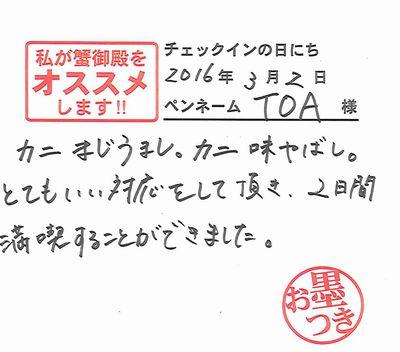 私が蟹御殿を
オススメ
します!!
チェックインの日にち
2016年 3月 2日
ペンネーム TOA 様
カニまじうまし。カニ味やばし。
とてもいい対応をして頂き、2日間
満喫することができました。
お墨つき